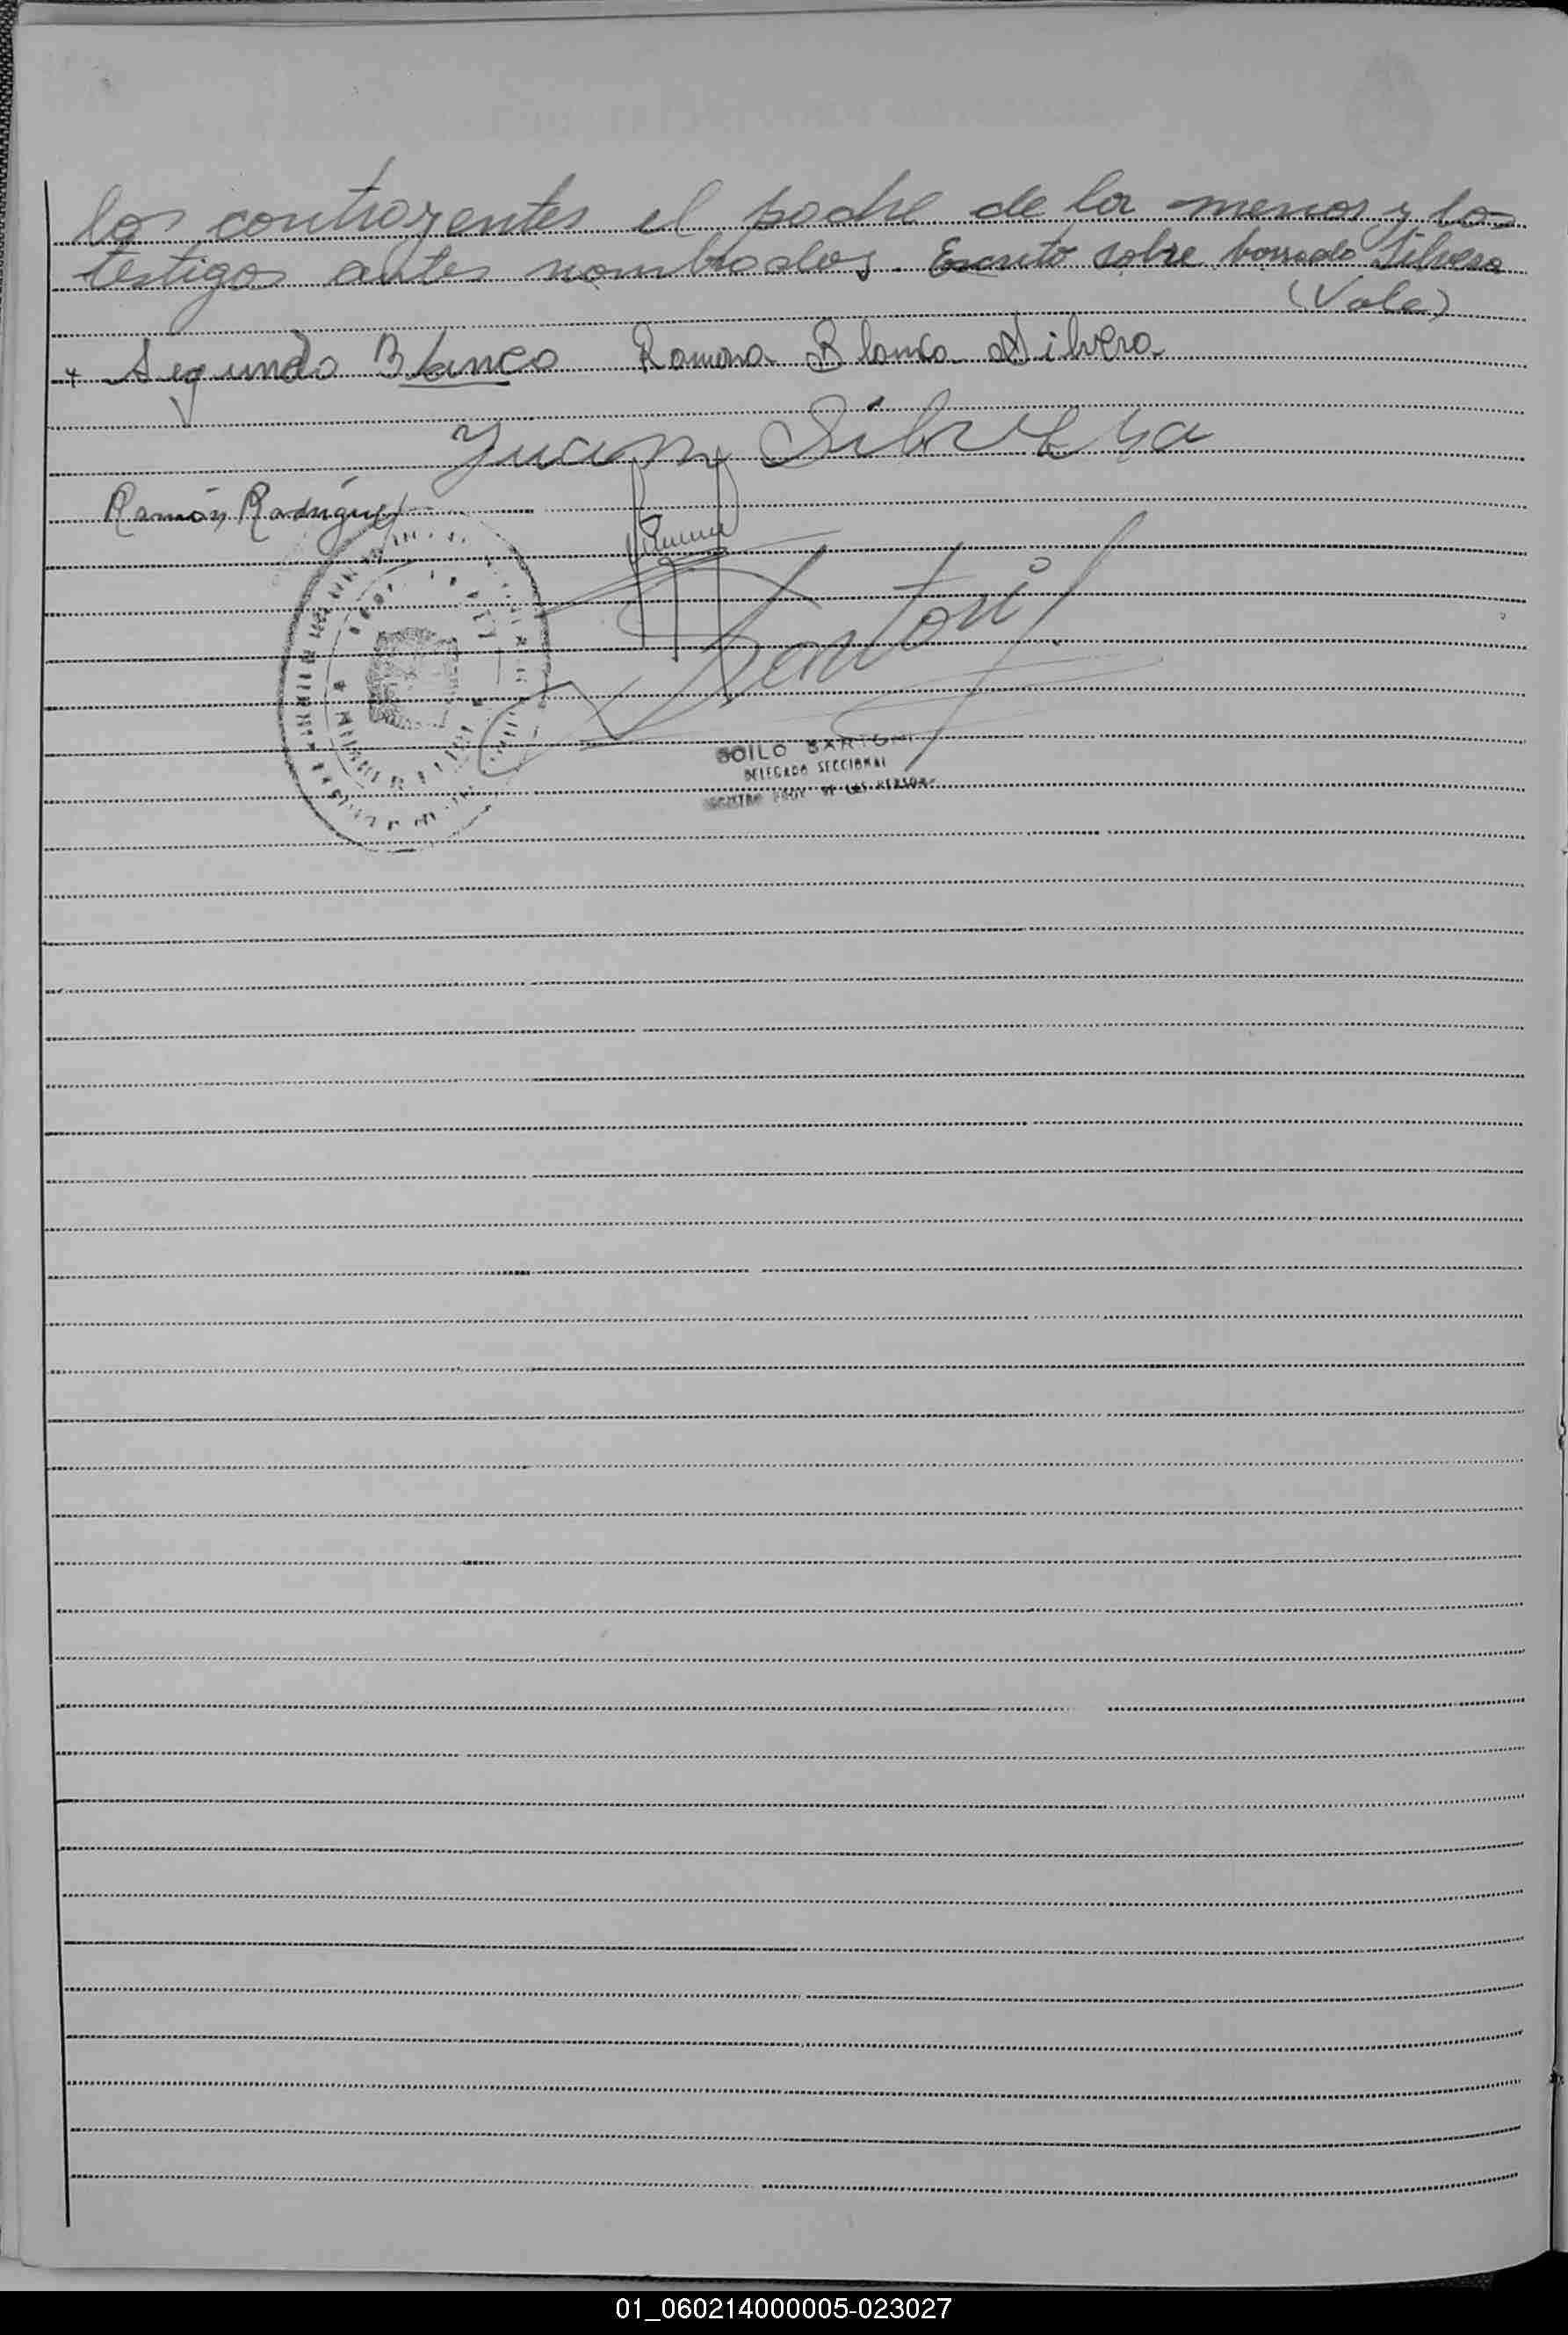 los contrayentes el padre de la menor y los
testigos antes nombrados. Escrito sobre borrado Silvera
(Vale)
+ Segundo Blanco Ramona Blanca Silvera
Juan Silvera
Ramón Rodríguez
Sartori
SOILO SARTORI
DELEGADO SECCIONAL
REGISTRO PROV. DE LAS PERSONAS
01_060214000005-023027